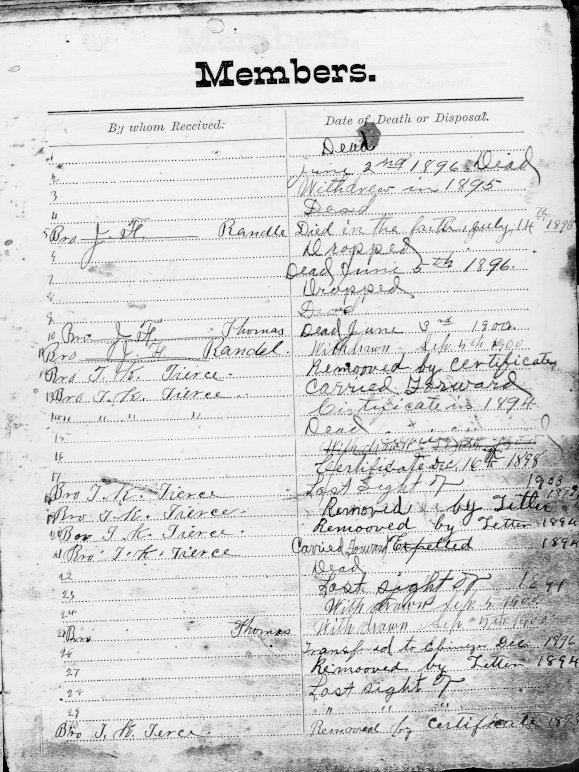 Members.
By whom Received: Date of Death or Disposal.
1 Dead
2 June 2nd 1896 Dead
3 Withdrew in 1895
4 Dead
5 Bro J. F. Randle Died in the faith, July 14th 1895
6 Dropped
7 Dead June 5th 1896.
8 Dropped
9 Dead
10 Bro J F. Thomas Dead June 3rd 1900
11 Bro J F Randel. Withdrawn - Sep. 4th 1900
12 Bro T. K. Tierce. Remooved by Certificate
13 Bro T. K. Tierce Carried Forward
14 " " " " Certificate in 1894
15 Dead
16 Withdrawn
17 Certificate Dec. 16th 1898
18 Bro T. K. Tierce Lost Sight of 1903
19 Bro T. K. Tierce. Remooved by Letter
20 Bro T. K. Tierce. Remooved by Letter 1894
21 Bro T. K. Tierce Carried Forward Expelled 1894
22 Dead
23 Lost sight of
24 With drawn Sep. 4 1900
25 Bro Thomas With drawn Sep 4th 1900
26 Transfred to Dec 1896
27 Remooved by Letter 1894
28 Lost sight of
29 " " "
30 Bro T. K. Terce. Removed by Certificate